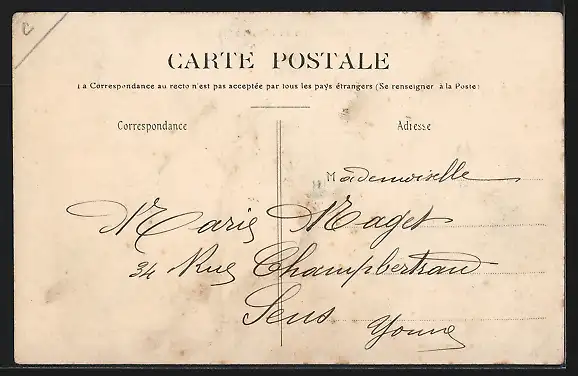 C
CARTE POSTALE
La Correspondance au recto n'est pas acceptée par tous les pays étrangers (Se renseigner à la Poste)
Correspondance
Adresse
Mademoiselle
Marie Maget
34 Rue Champbertrand
Sens Yonne